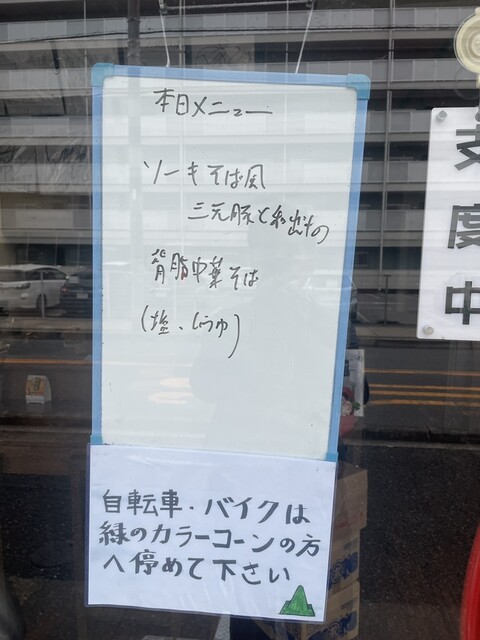 本日メニュー
ソーキそば風
三元豚と和出汁の
背脂中華そば
(塩、しょうゆ)
自転車・バイクは
緑のカラーコーンの方
へ停めて下さい
支度中